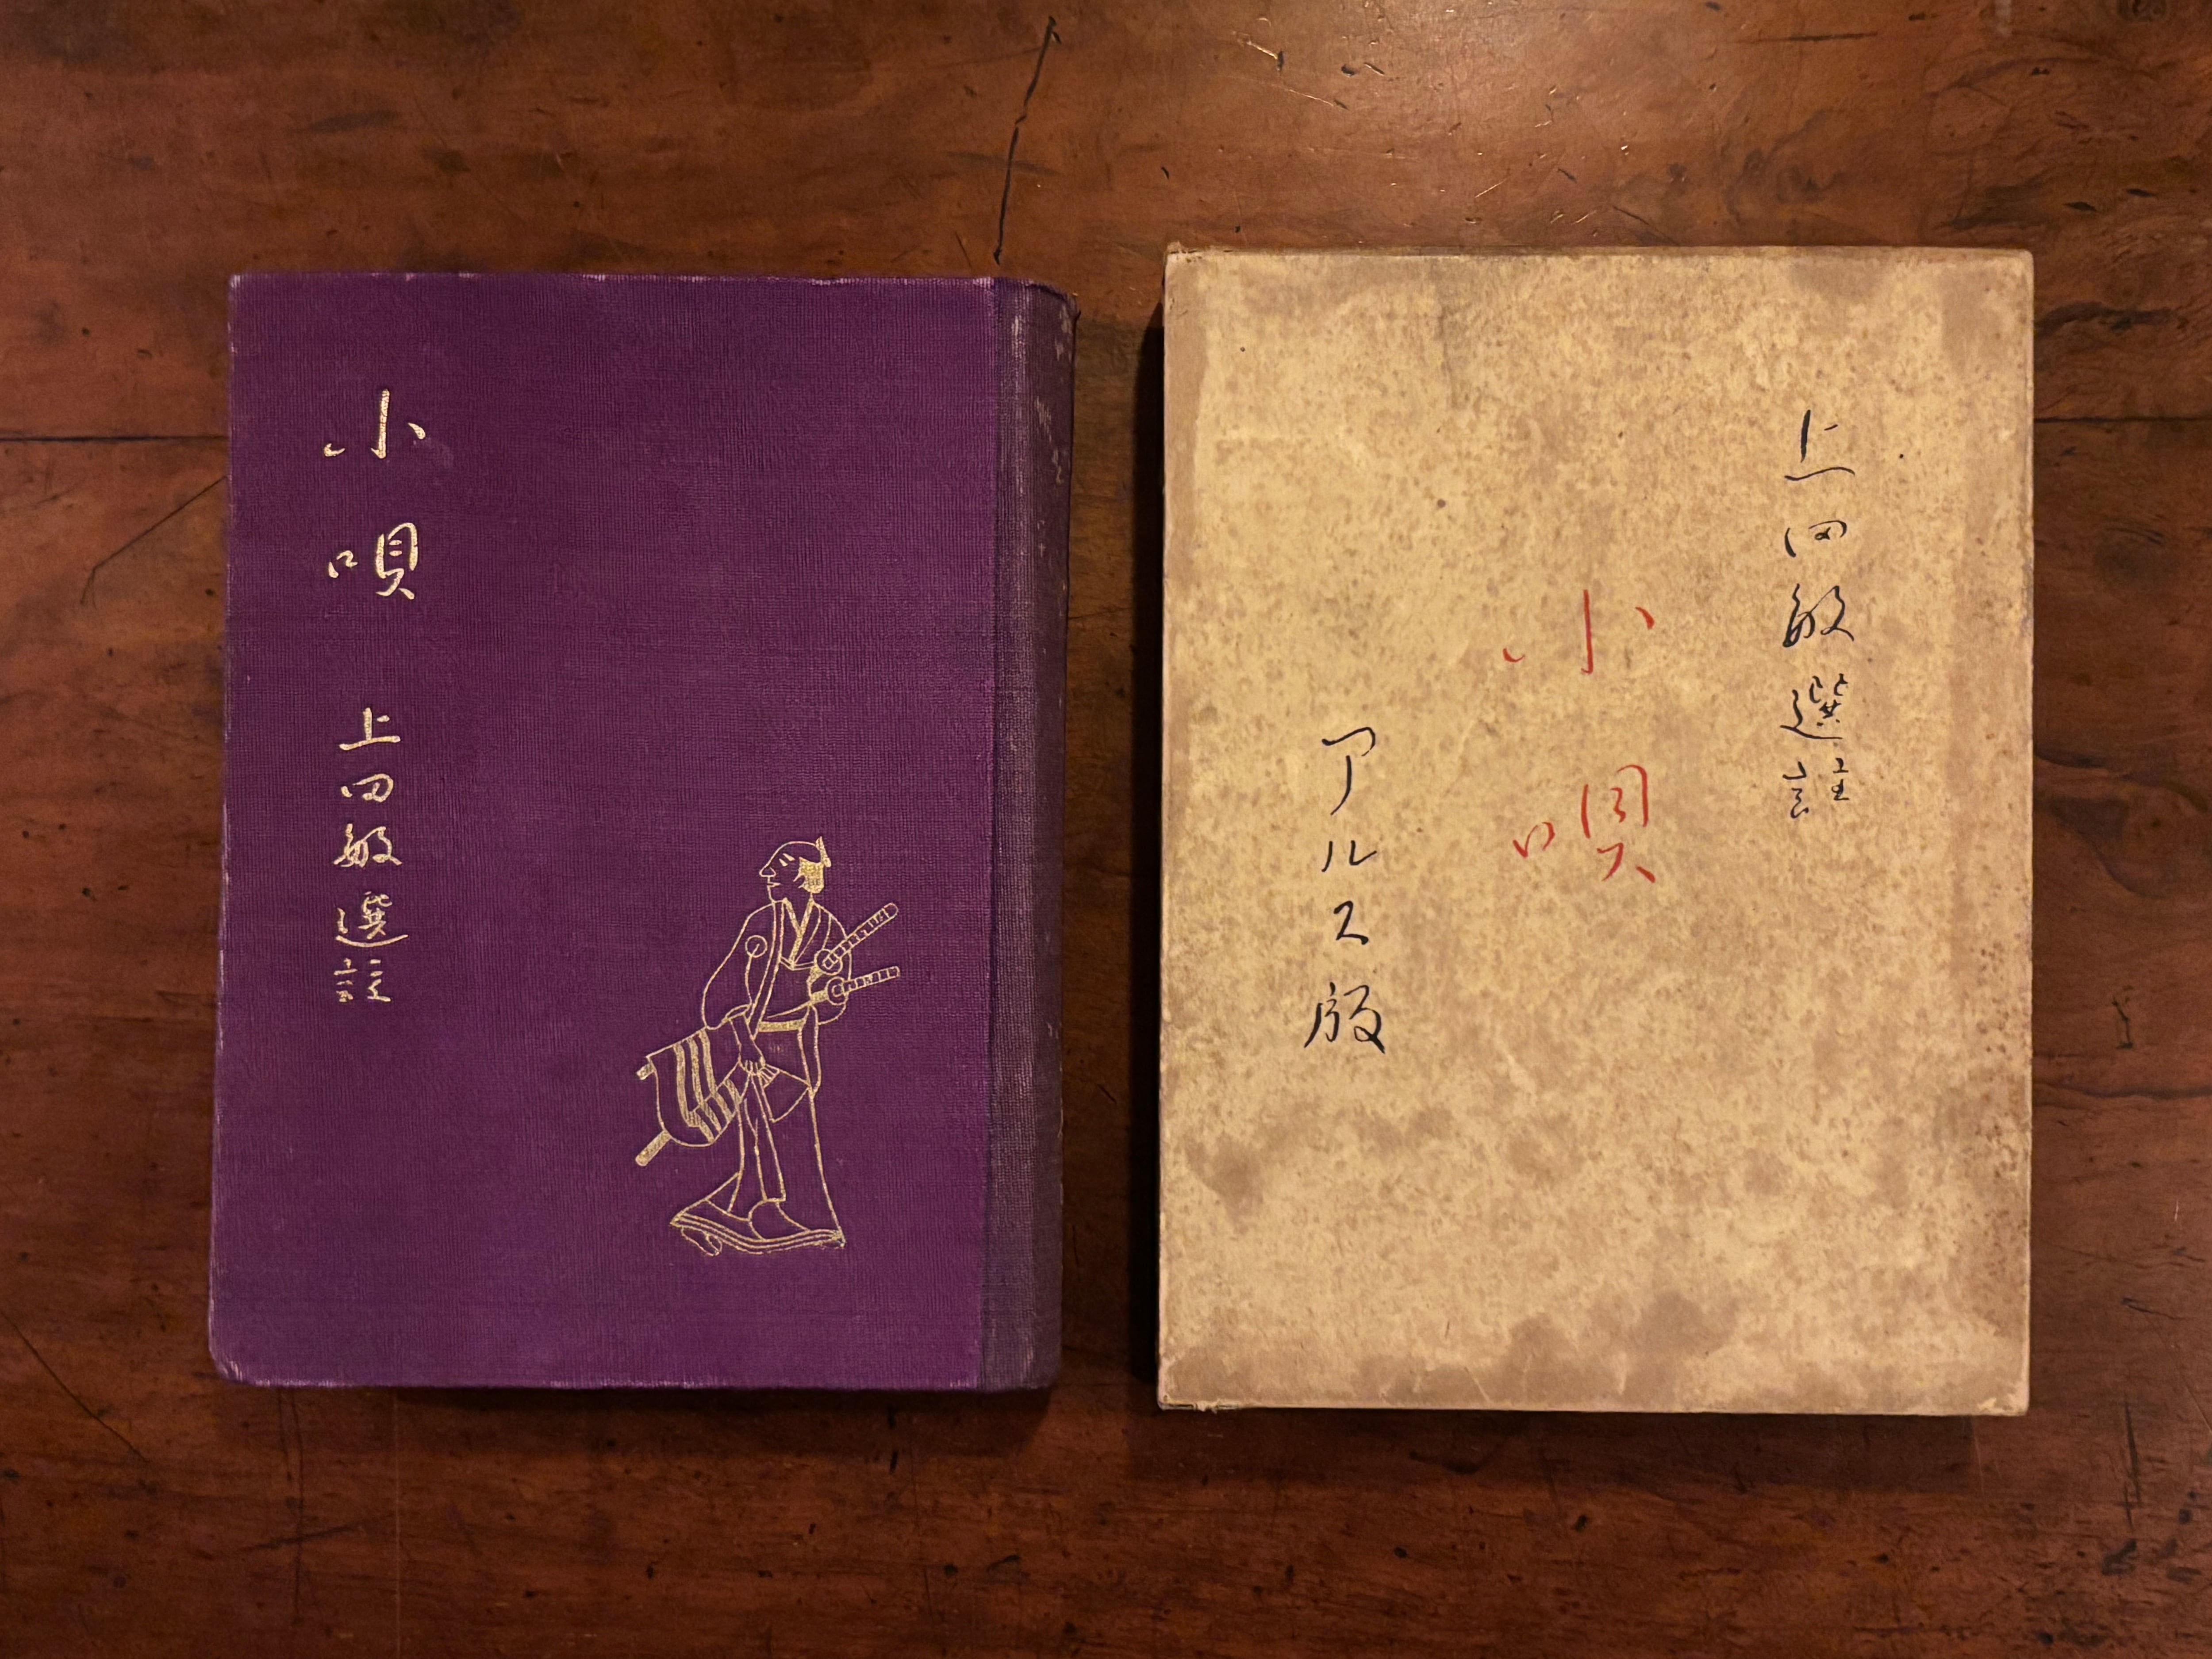 小唄
上田敏選註
上田敏選註
小唄
アルス版